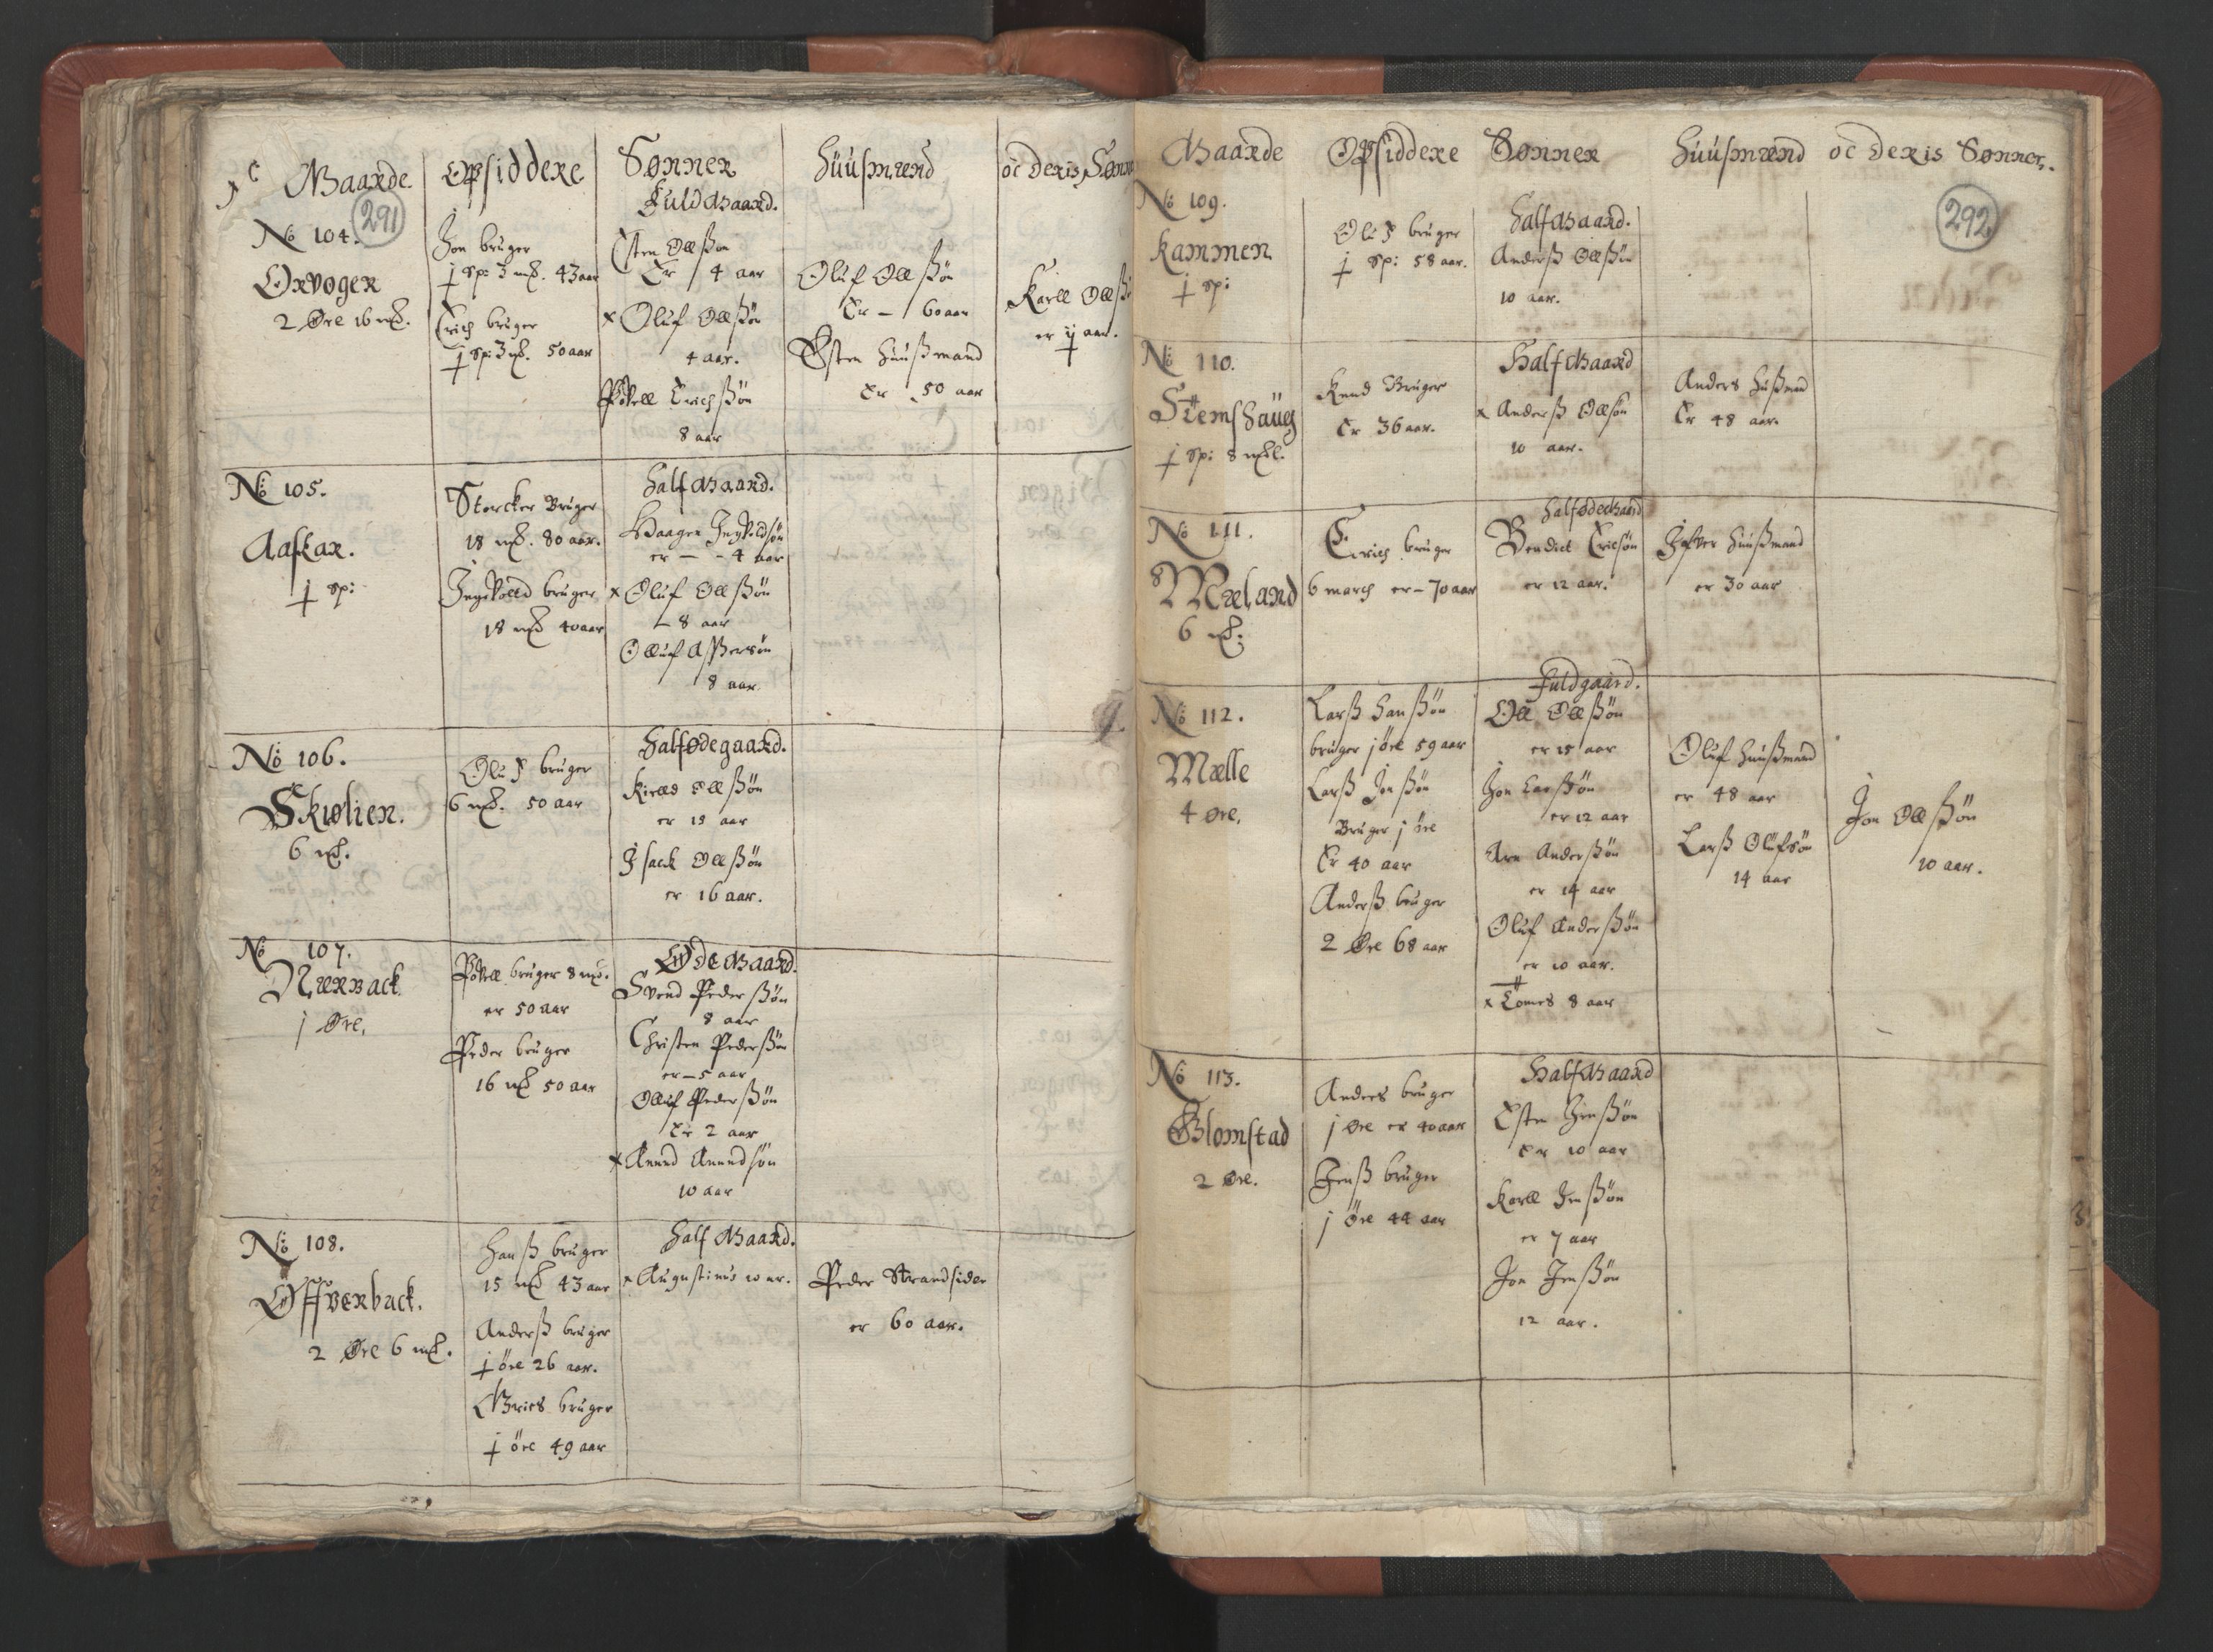 Gaarde
Opsiddere
Sønner
Huusmænd
oc deris Sønner
291
Fuldgaard.
No 104.
Orvogen
2 Øre 16 mk.
Jon bruger
j Sp: 3 mk. 43 aar
Erich bruger
j Sp: 3 mk. 50 aar
Esten Ollßøn
Er 4 aar
x Oluf Ollßøn
4 aar.
Povell Erichßøn
8 aar
Oluf Ollßøn
Er – 60 aar
Østen Huußmand
Er 50 aar
Karll Ollßøn
er ij aar.
No 105.
Aaskar.
j Sp:
Storcker Bruger
18 mk. 80 aar.
Ingevold bruger
18 mk 40 aar
Halfgaard.
Haagen Ingvoldsøn
er – – 4 aar
x Oluf Ollßøn
– 8 aar
Olluf Aßersøn
8 aar
No 106.
Skiølien.
6 mk.
Oluf bruger
6 mk. 50 aar
Halfødegaard.
Kield Ollßøn
er 18 aar
Isack Ollßøn
er 16 aar.
No 107.
Nærback
j Øre.
Povell bruger 8 mk.
er 50 aar
Peder bruger
16 mk 50 aar
Ødegaard.
Svend Pederßøn
8 aar
Christen Pederßøn
er – 5 aar
Olluf Pederßøn
Er 2 aar
x Anund Anundsøn
10 aar
No 108.
Øffverback.
2 Øre 6 mk.
Hanß bruger
15 mk 43 aar
Anderß bruger
j øre 26 aar.
Griels bruger
j øre 49 aar
Half Gaard.
x Augustinus 10 ar.
Peder Strandsider
er 60 aar.
Gaarde
Opsiddere
Sønner
Huusmænd
oc deris Sønner.
292
No 109.
Kammen
j Sp:
Oluf bruger
j Sp: 58 aar.
Halfgaard.
Anderß Ollßøn
10 aar.
No 110.
Stemshaug
j Sp: 8 mk.
Knud Bruger
Er 36 aar.
Halfgaard
x Anderß Ollsøn
10 aar.
Anders Hußmand
Er 48 aar.
No 111.
Mæland
6 mk.
Erich bruger
6 march er – 70 aar
Halfødegaard
Bendict Ericsøn
er 12 aar.
Ifver Huußmand
er 30 aar
No 112.
Mælle
4 Øre.
Larß Hanßøn
bruger j øre 59 aar
Larß Jonßøn
Bruger j øre
Er 40 aar
Anderß bruger
2 Øre 68 aar
Fuldgaard.
Oll Ollßøn
er 15 aar
Jon Larßøn
er 12 aar
Arn Anderßøn
er 14 aar
Oluf Anderßøn
er 10 aar.
x Tomes 8 aar
Oluf Huußmand
er 48 aar
Larß Olufsøn
14 aar
Jon Ollßøn
10 aar.
No 113.
Blomstad
2 Øre.
Anders bruger
j Øre er 40 aar
Jenß bruger
j Øre 44 aar
Halfgaard
Esten Jenßøn
Er 10 aar
Karll Jenßøn
er 7 aar
Jon Jenßøn
12 aar.